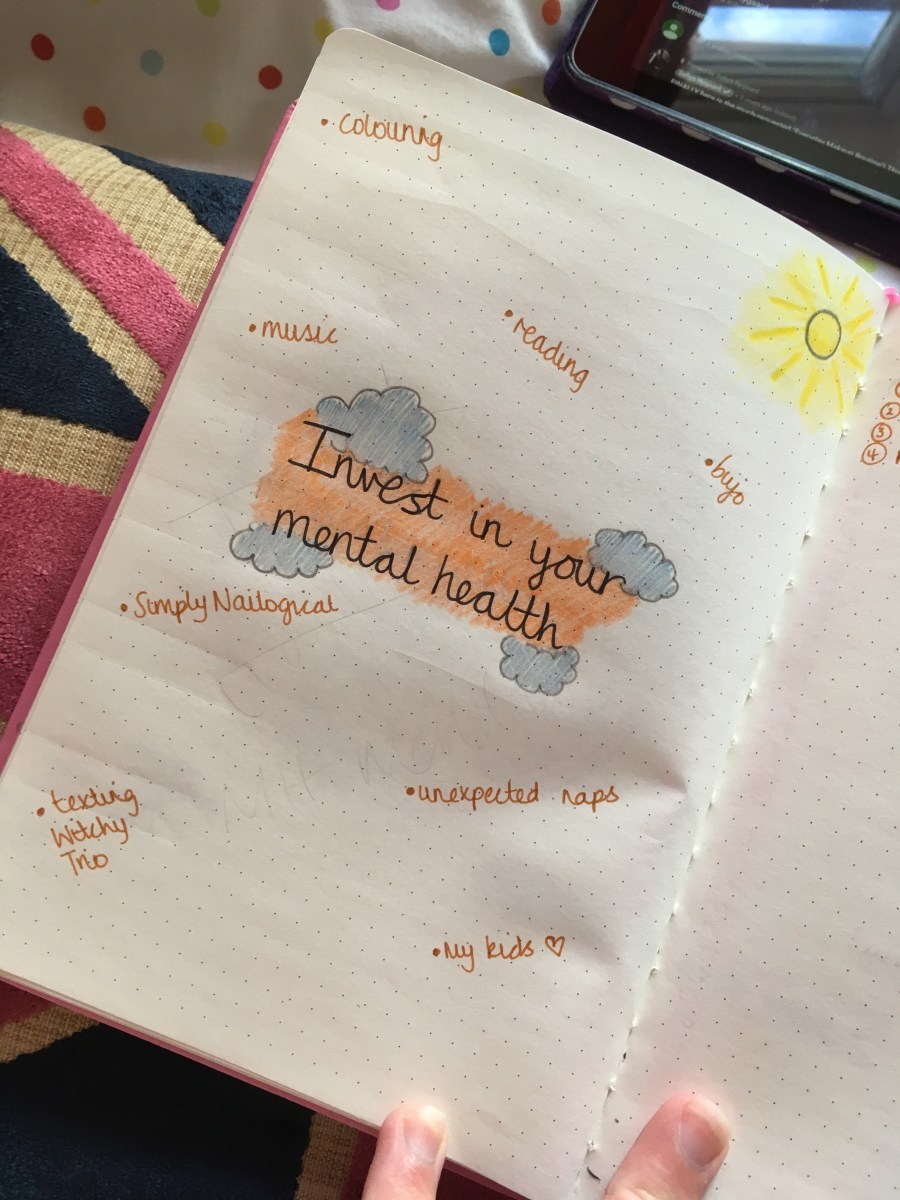 Comments
• colouring
• music
• reading
Invest in your
mental health
• bujo
②
③
④
• Simply Nailogical
• texting
Witchy
Trio
• unexpected naps
• My kids ♡